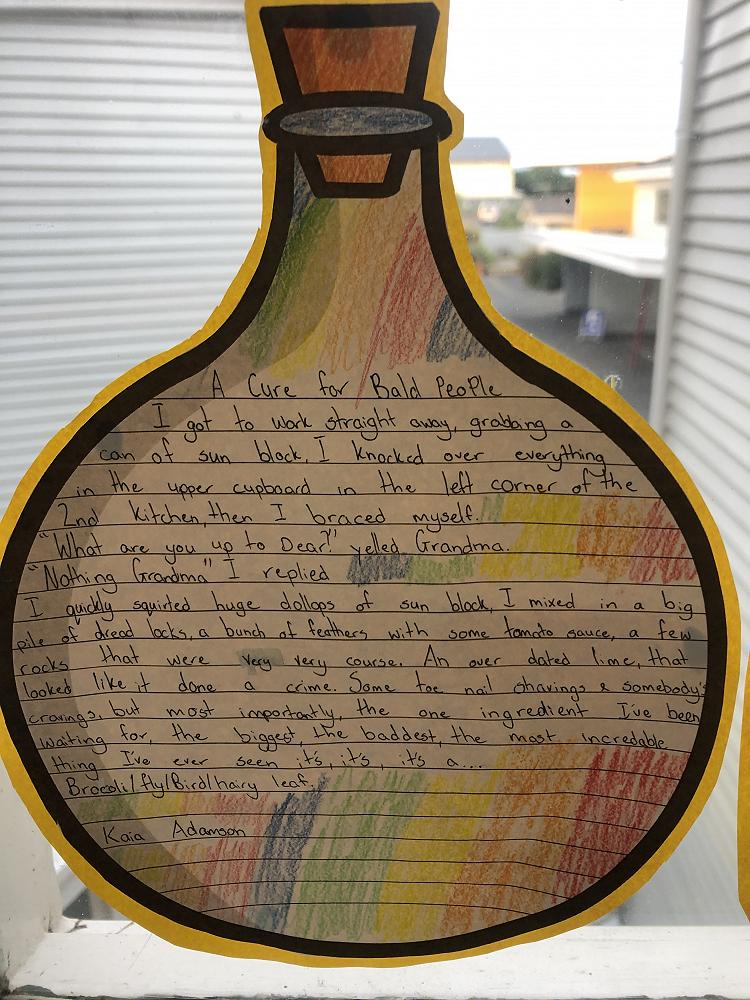 A Cure for Bald PeoPle
I got to work straight away, grabbing a
can of sun block, I knocked over everything
in the upper cupboard in the left corner of the
2nd kitchen, then I braced myself.
"What are you up to Dear?" yelled Grandma.
"Nothing Grandma" I replied
I quickly squirted huge dollops of sun block, I mixed in a big
pile of dread locks, a bunch of feathers with some tomato sauce, a few
rocks that were very very course. An over dated lime, that
looked like it done a crime. Some toe nail shavings & somebody's
cravings, but most importantly, the one ingredient I've been
waiting for, the biggest, the baddest, the most incredable
thing I've ever seen it's, it's, it's a...
Brocoli/fly/Bird/hairy leaf.
Kaia Adamson